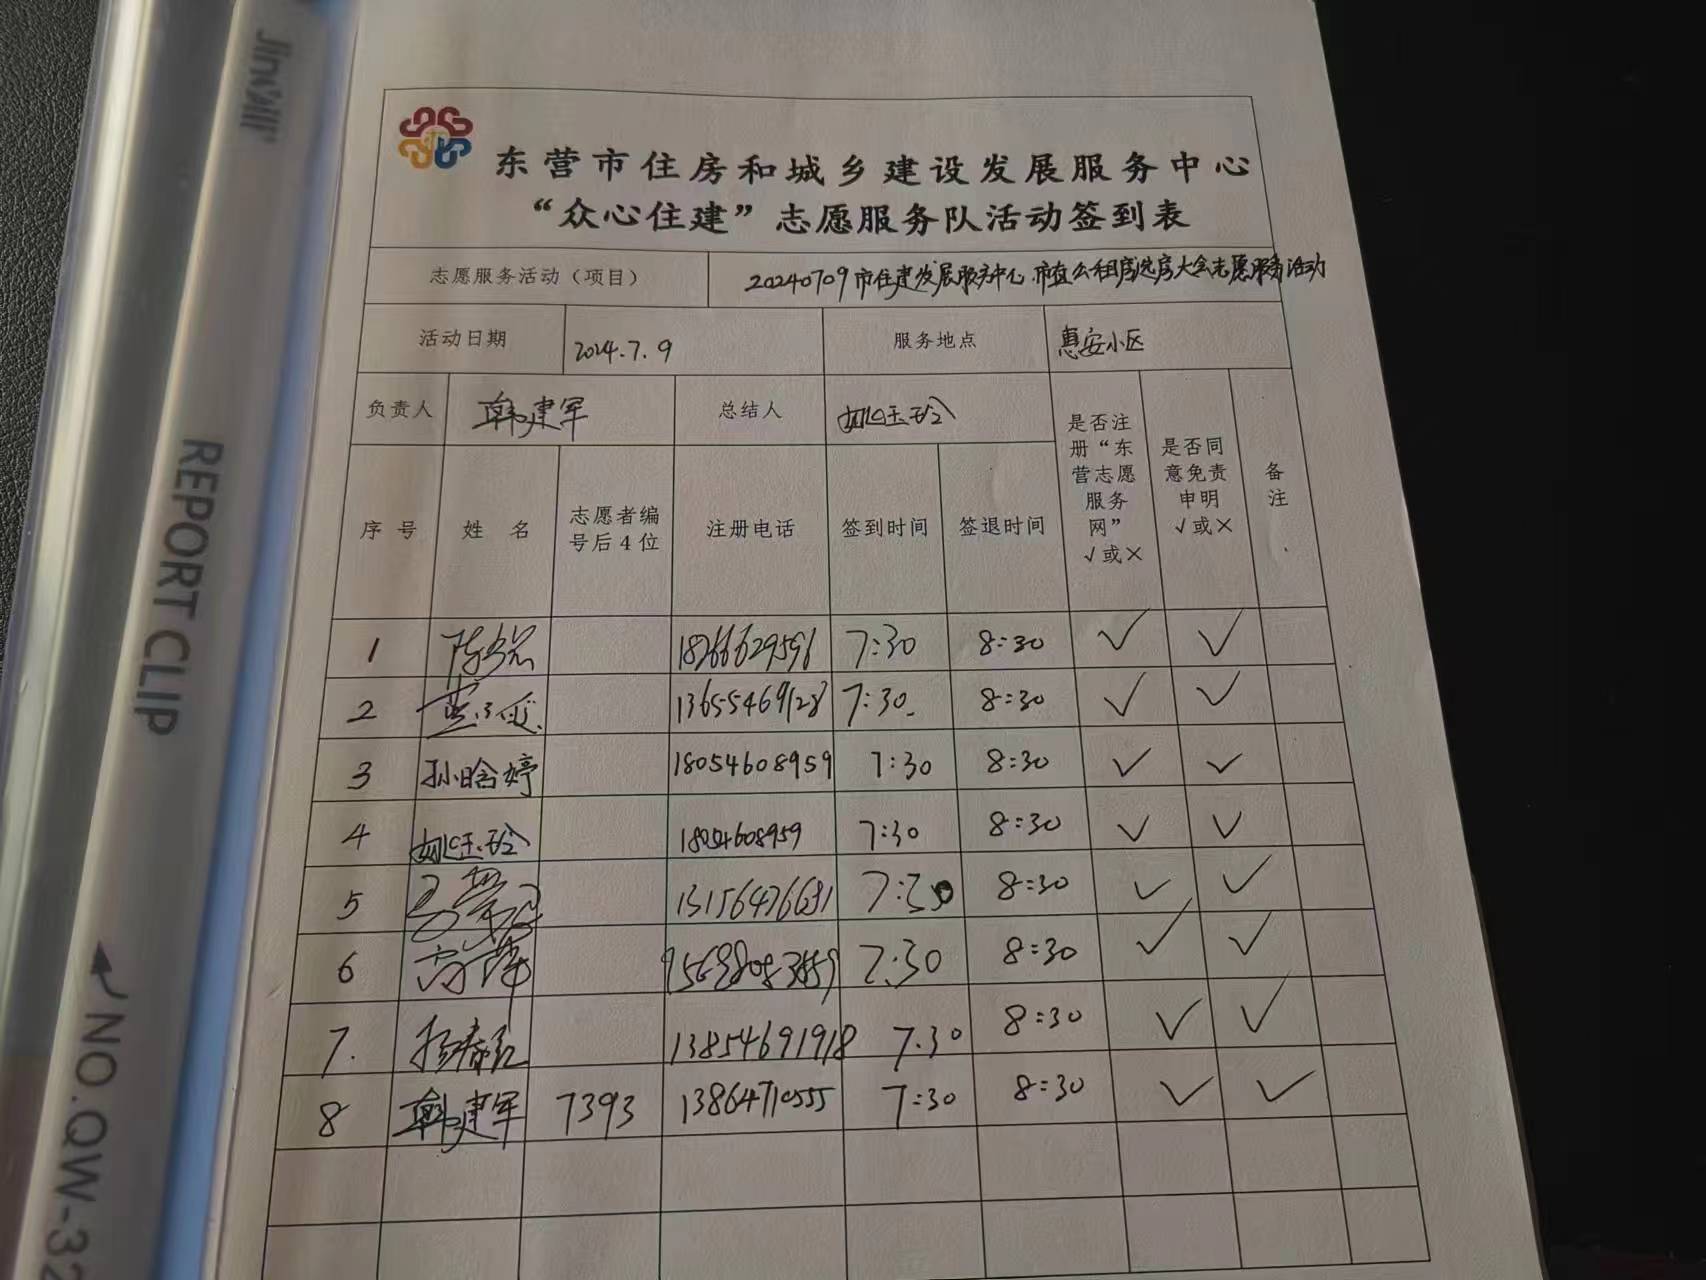 Jinxin
REPORT CLIP
NO.QW-32
东营市住房和城乡建设发展服务中心
“众心住建”志愿服务队活动签到表
志愿服务活动（项目） 20240709市住建发展服务中心市直公租房选房大会志愿服务活动
活动日期 2024.7.9 服务地点 惠安小区
负责人 韩建军 总结人 姚玉玲
序号 姓名 志愿者编号后4位 注册电话 签到时间 签退时间 是否注册“东营志愿服务网”√或× 是否同意免责申明√或× 备注
1 7:30 8:30 ✓ ✓
2 13655469128 7:30 8:30 ✓ ✓
3 孙晗婷 18054608959 7:30 8:30 ✓ ✓
4 姚玉玲 18054608959 7:30 8:30 ✓ ✓
5 7:30 8:30 ✓ ✓
6 7:30 8:30 ✓ ✓
7. 杨春红 13854691918 7.30 8:30 ✓ ✓
8 韩建军 7393 13864710555 7:30 8:30 ✓ ✓